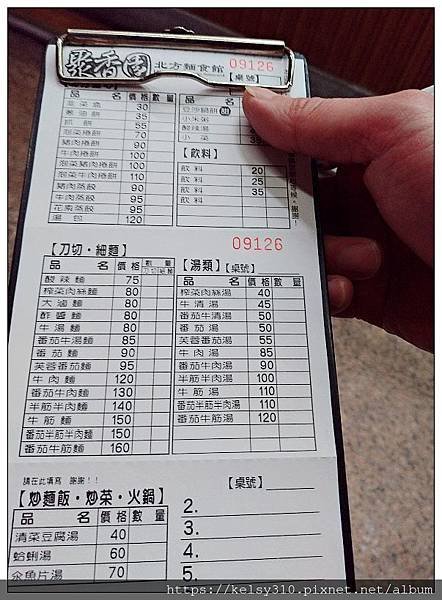 聚香園 北方麵食館 09126
【桌號】
品 名 價格 數量
韭菜盒 30
蔥油餅 35
抓餅 55
泡菜捲餅 70
豬肉捲餅 90
牛肉捲餅 100
泡菜豬肉捲餅 100
泡菜牛肉捲餅 110
豬肉蒸餃 90
牛肉蒸餃 95
花素蒸餃 95
湯包 120
豆沙鍋餅 甜
小米粥
酸辣湯
小菜 35
【飲料】
飲料 20
飲料 25
飲料 35
09126
【刀切・細麵】
品 名 價格 數量
刀切 細麵
酸辣麵 75
榨菜肉絲麵 80
大滷麵 80
酢醬麵 80
牛湯麵 80
番茄牛湯麵 85
番茄麵 90
芙蓉番茄麵 95
牛肉麵 120
番茄牛肉麵 130
半筋半肉麵 140
牛筋麵 150
番茄半筋半肉麵 150
番茄牛筋麵 160
【湯類】【桌號】
品 名 價格 數量
榨菜肉絲湯 40
牛清湯 45
番茄牛清湯 50
番茄湯 50
芙蓉番茄湯 55
牛肉湯 85
番茄牛肉湯 90
半筋半肉湯 100
牛筋湯 110
番茄半筋半肉湯 110
番茄牛筋湯 120
請在此填寫 謝謝！！
【桌號】
【炒麵飯・炒菜・火鍋】
品 名 價格 數量
清菜豆腐湯 40
蛤蜊湯 60
魚片湯 70
2.
3.
4.
5.
https://kelsy310.pixnet.net/album